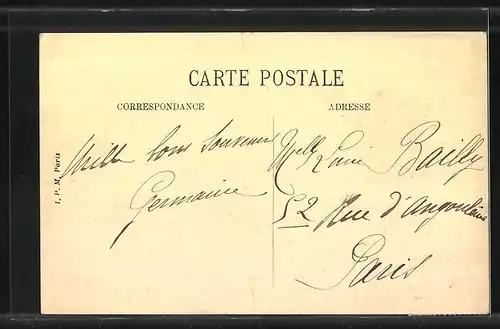 CARTE POSTALE
CORRESPONDANCE
ADRESSE
I. P. M. Paris
Mille bons Souvenirs
Germaine
Melle Bailly
52 Rue d'Angoulême
Paris